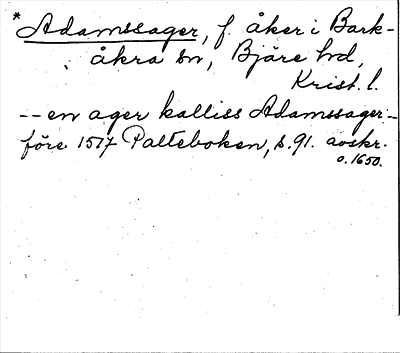 *Adamssager, f. åker i Bark-
åkra sn, Bjäre hd,
Krist. l.
-- en ager kalliss Adamssager --
före 1517 Palteboken, s. 91. avskr.
o. 1650.